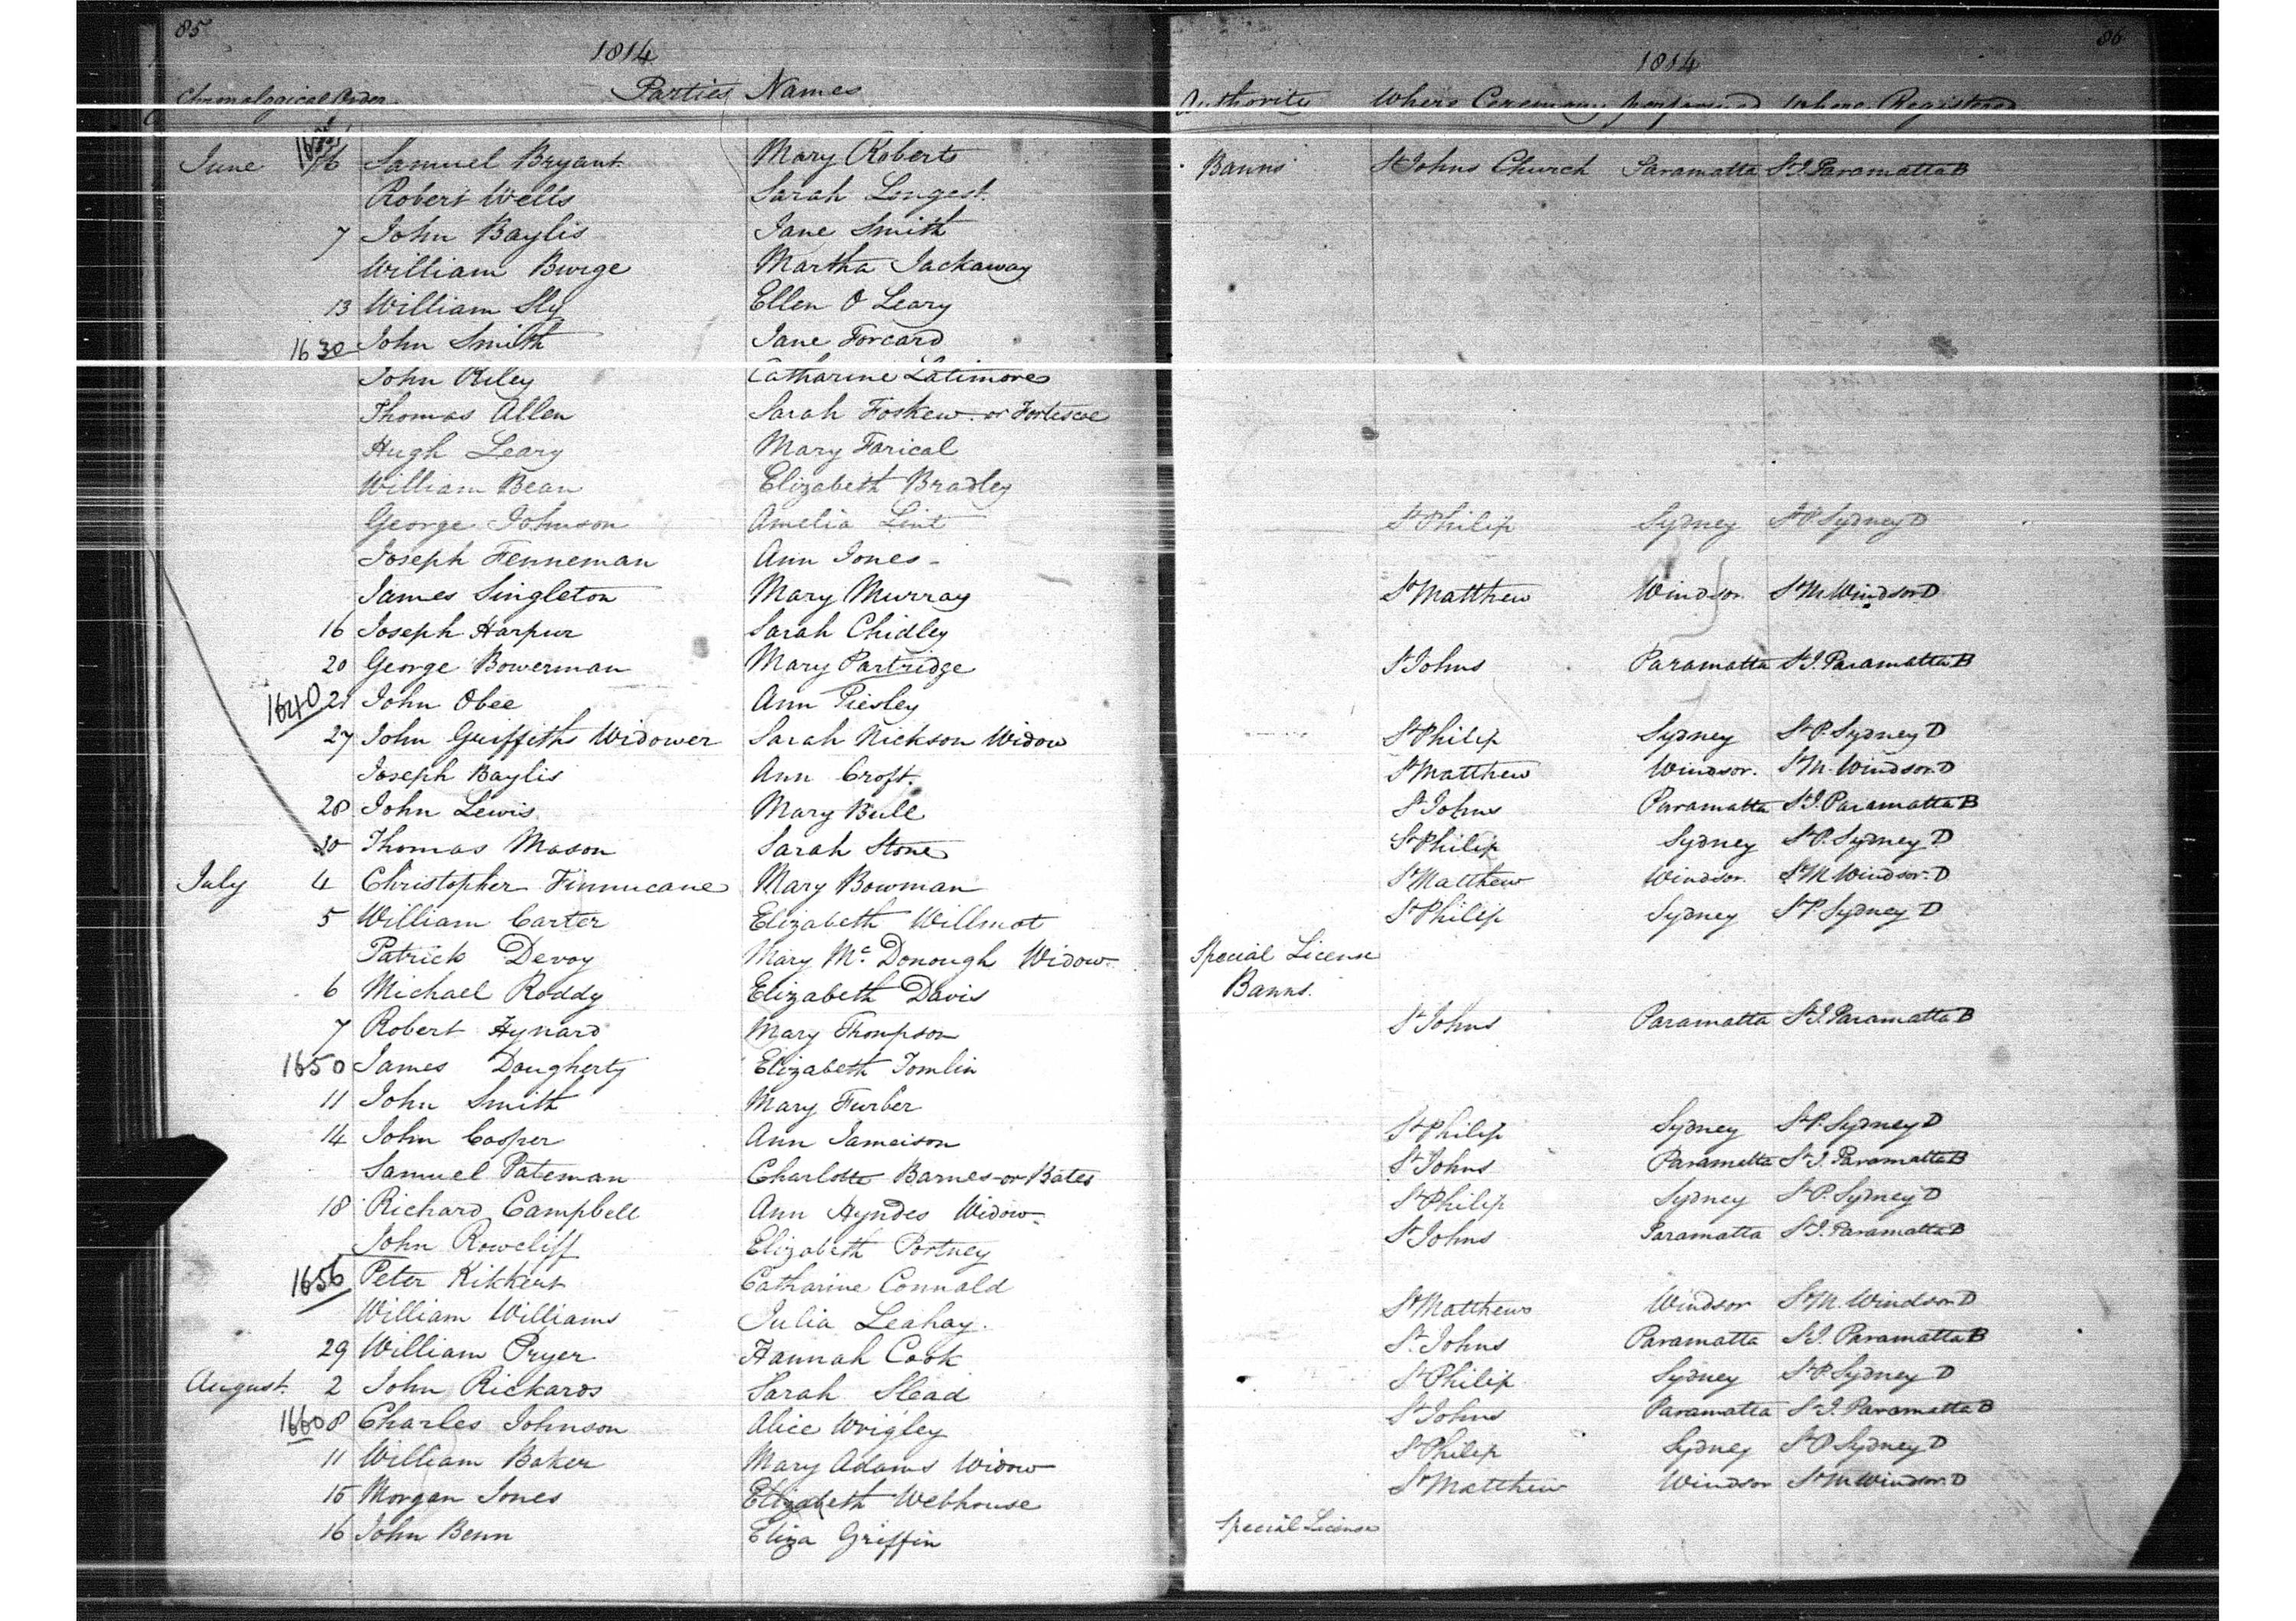 85
1814
Parties Names
Chronological Order
June 6 Samuel Bryant Mary Roberts
Robert Wells Sarah Longest
7 John Baylis Jane Smith
William Burge Martha Jackaway
13 William Sly Ellen O Leary
1630 John Smith Jane Forcard
John Riley Catharine Latimore
Thomas Allen Sarah Foskew or Fortescue
Hugh Leary Mary Farical
William Bean Elizabeth Bradley
George Johnson Amelia Lint
Joseph Fenneman Ann Jones
James Singleton Mary Murray
16 Joseph Harpur Sarah Chidley
20 George Bowerman Mary Partridge
1640 21 John Obee Ann Piesley
27 John Griffiths Widower Sarah Nickson Widow
Joseph Baylis Ann Croft
28 John Lewis Mary Bull
30 Thomas Mason Sarah Stone
July 4 Christopher Finnucane Mary Bowman
5 William Carter Elizabeth Willmot
Patrick Devoy Mary Mc Donough Widow
6 Michael Roddy Elizabeth Davis
7 Robert Hynard Mary Thompson
1650 James Dougherty Elizabeth Tomlin
11 John Smith Mary Furber
14 John Cooper Ann Jameison
Samuel Pateman Charlotte Barnes or Bates
18 Richard Campbell Ann Hyndes Widow
John Rowcliff Elizabeth Portney
1656 Peter Kikkert Catharine Connald
William Williams Julia Leahay.
29 William Pryer Hannah Cook
August 2 John Rickards Sarah Slead
1660 8 Charles Johnson Alice Wrigley
11 William Baker Mary Adams Widow
15 Morgan Jones Elizabeth Webhouse
16 John Benn Eliza Griffin
86
1814
Authority Where Ceremony performed Where Registered
Banns St Johns Church Paramatta St J. Paramatta B
St Philip Sydney St P. Sydney D
St Matthew Windsor St M Windsor D
St Johns Paramatta St J. Paramatta B
St Philip Sydney St P. Sydney D
St Matthew Windsor. St M. Windsor. D
St Johns Paramatta St J. Paramatta B
St Philip Sydney St P. Sydney D
St Matthew Windsor. St M Windsor. D
St Philip Sydney St P. Sydney D
Special License
Banns.
St Johns Paramatta St J. Paramatta B
St Philip Sydney St P. Sydney D
St Johns Paramatta St J. Paramatta B
St Philip Sydney St P. Sydney D
St Johns Paramatta St J. Paramatta B
St Matthews Windsor St M. Windsor D
St Johns Paramatta St J. Paramatta B
St Philip Sydney St P Sydney D
St Johns Paramatta St J. Paramatta B
St Philip Sydney St P Sydney D
St Matthew Windsor St M Windsor. D
Special License